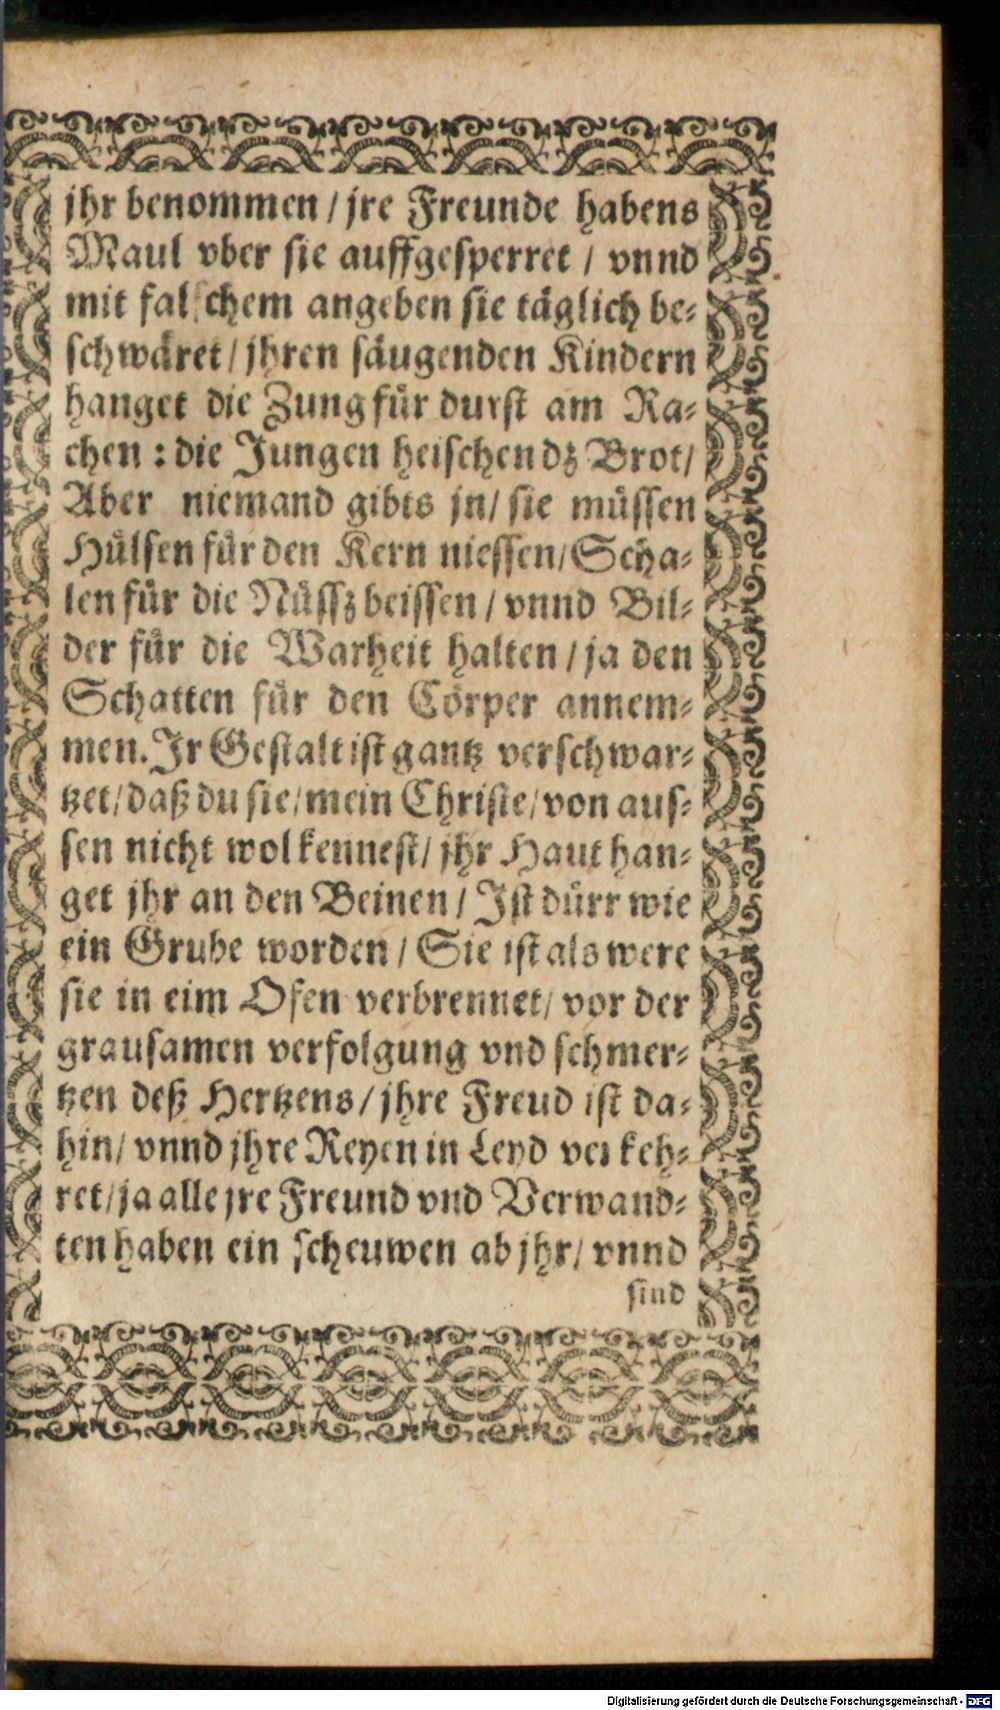 jhr benommen / jre Freunde habens
Maul vber sie auffgesperret / vnnd
mit falschem angeben sie täglich be⸗
schwäret / jhren säugenden Kindern
hanget die Zung für durst am Ra⸗
chen : die Jungen heischen dz Brot /
Aber niemand gibts jn / sie müssen
Hülsen für den Kern niessen / Scha⸗
len für die Nüssz beissen / vnnd Bil⸗
der für die Warheit halten / ja den
Schatten für den Cörper annem⸗
men. Jr Gestalt ist gantz verschwar⸗
tzet / daß du sie / mein Christe / von aus⸗
sen nicht wol kennest / jhr Haut han⸗
get jhr an den Beinen / Jst dürr wie
ein Grube worden / Sie ist als were
sie in eim Ofen verbrennet / vor der
grausamen verfolgung vnd schmer⸗
tzen deß Hertzens / jhre Freud ist da⸗
hin / vnnd jhre Reyen in Leyd verkeh⸗
ret / ja alle jre Freund vnd Verwand⸗
ten haben ein scheuwen ab jhr / vnnd
sind
Digitalisierung gefördert durch die Deutsche Forschungsgemeinschaft - DFG